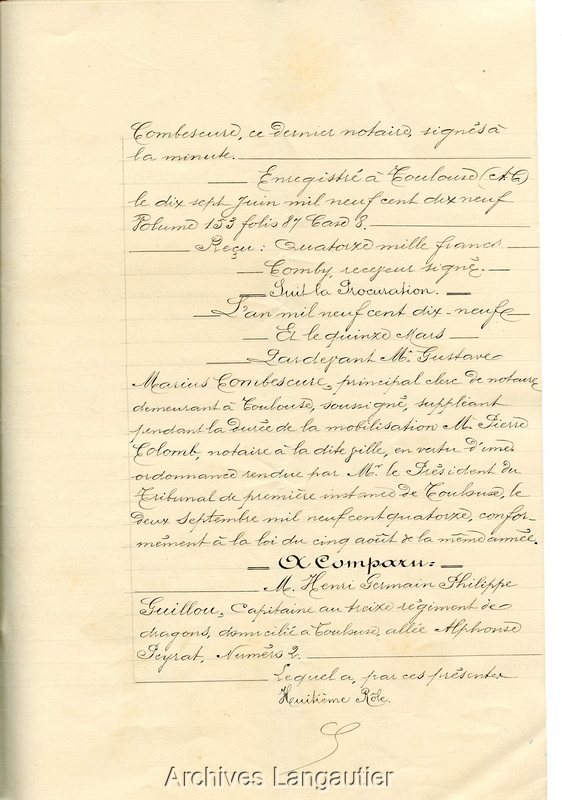 Combescure, ce dernier notaire, signés à
la minute.
Enregistré à Toulouse (A.C)
le dix sept Juin mil neuf cent dix neuf
Volume 153 folio 87 Case 8.
Reçu : Quatorze mille francs
Comby, receveur signé.
Suit la Procuration.
L'an mil neuf cent dix-neuf
Et le quinze Mars
Pardevant Me Gustave
Marius Combescure, principal clerc de notaire
demeurant à Toulouse, soussigné, suppléant
pendant la durée de la mobilisation Me Pierre
Colomb, notaire à la dite ville, en vertu d'une
ordonnance rendue par Mr le Président du
Tribunal de première instance de Toulouse, le
deux Septembre mil neuf cent quatorze, confor-
mément à la loi du cinq août de la même année.
A Comparu :
M. Henri Germain Philippe
Guillou, Capitaine au treize régiment de
dragons, domicilié à Toulouse, allée Alphonse
Peyrat, Numéro 2.
Lequel a, par ces présentes
Huitième Rôle.
Archives Langautier